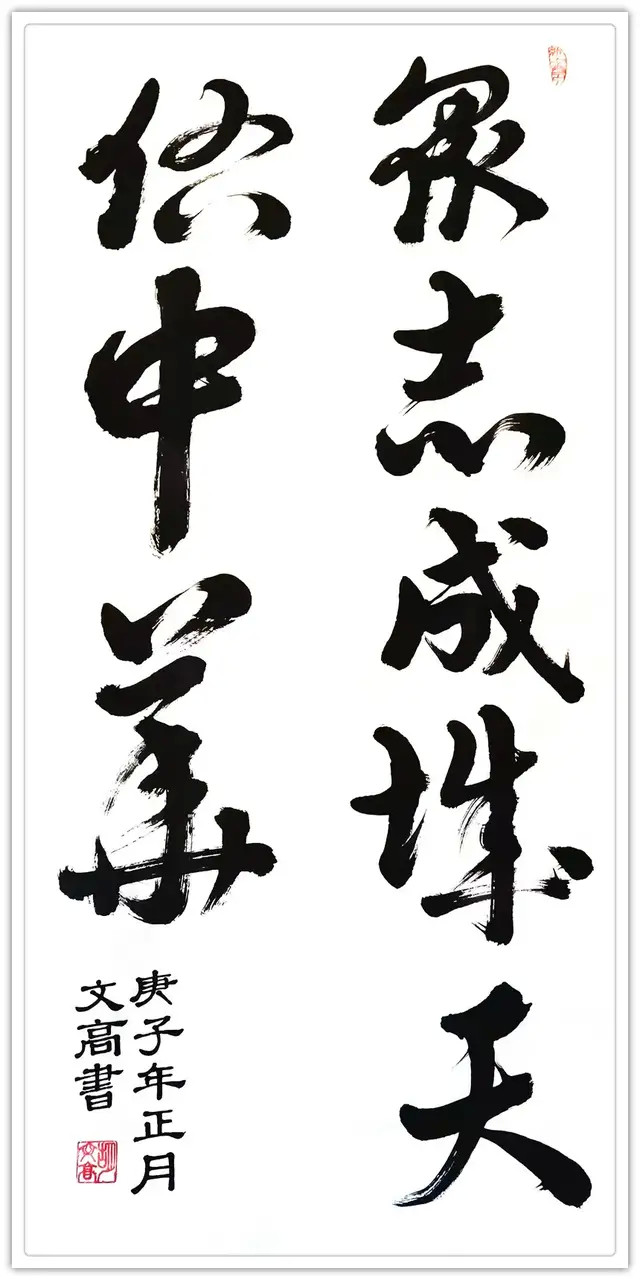 众志成城天
佑中華
庚子年正月
文高書